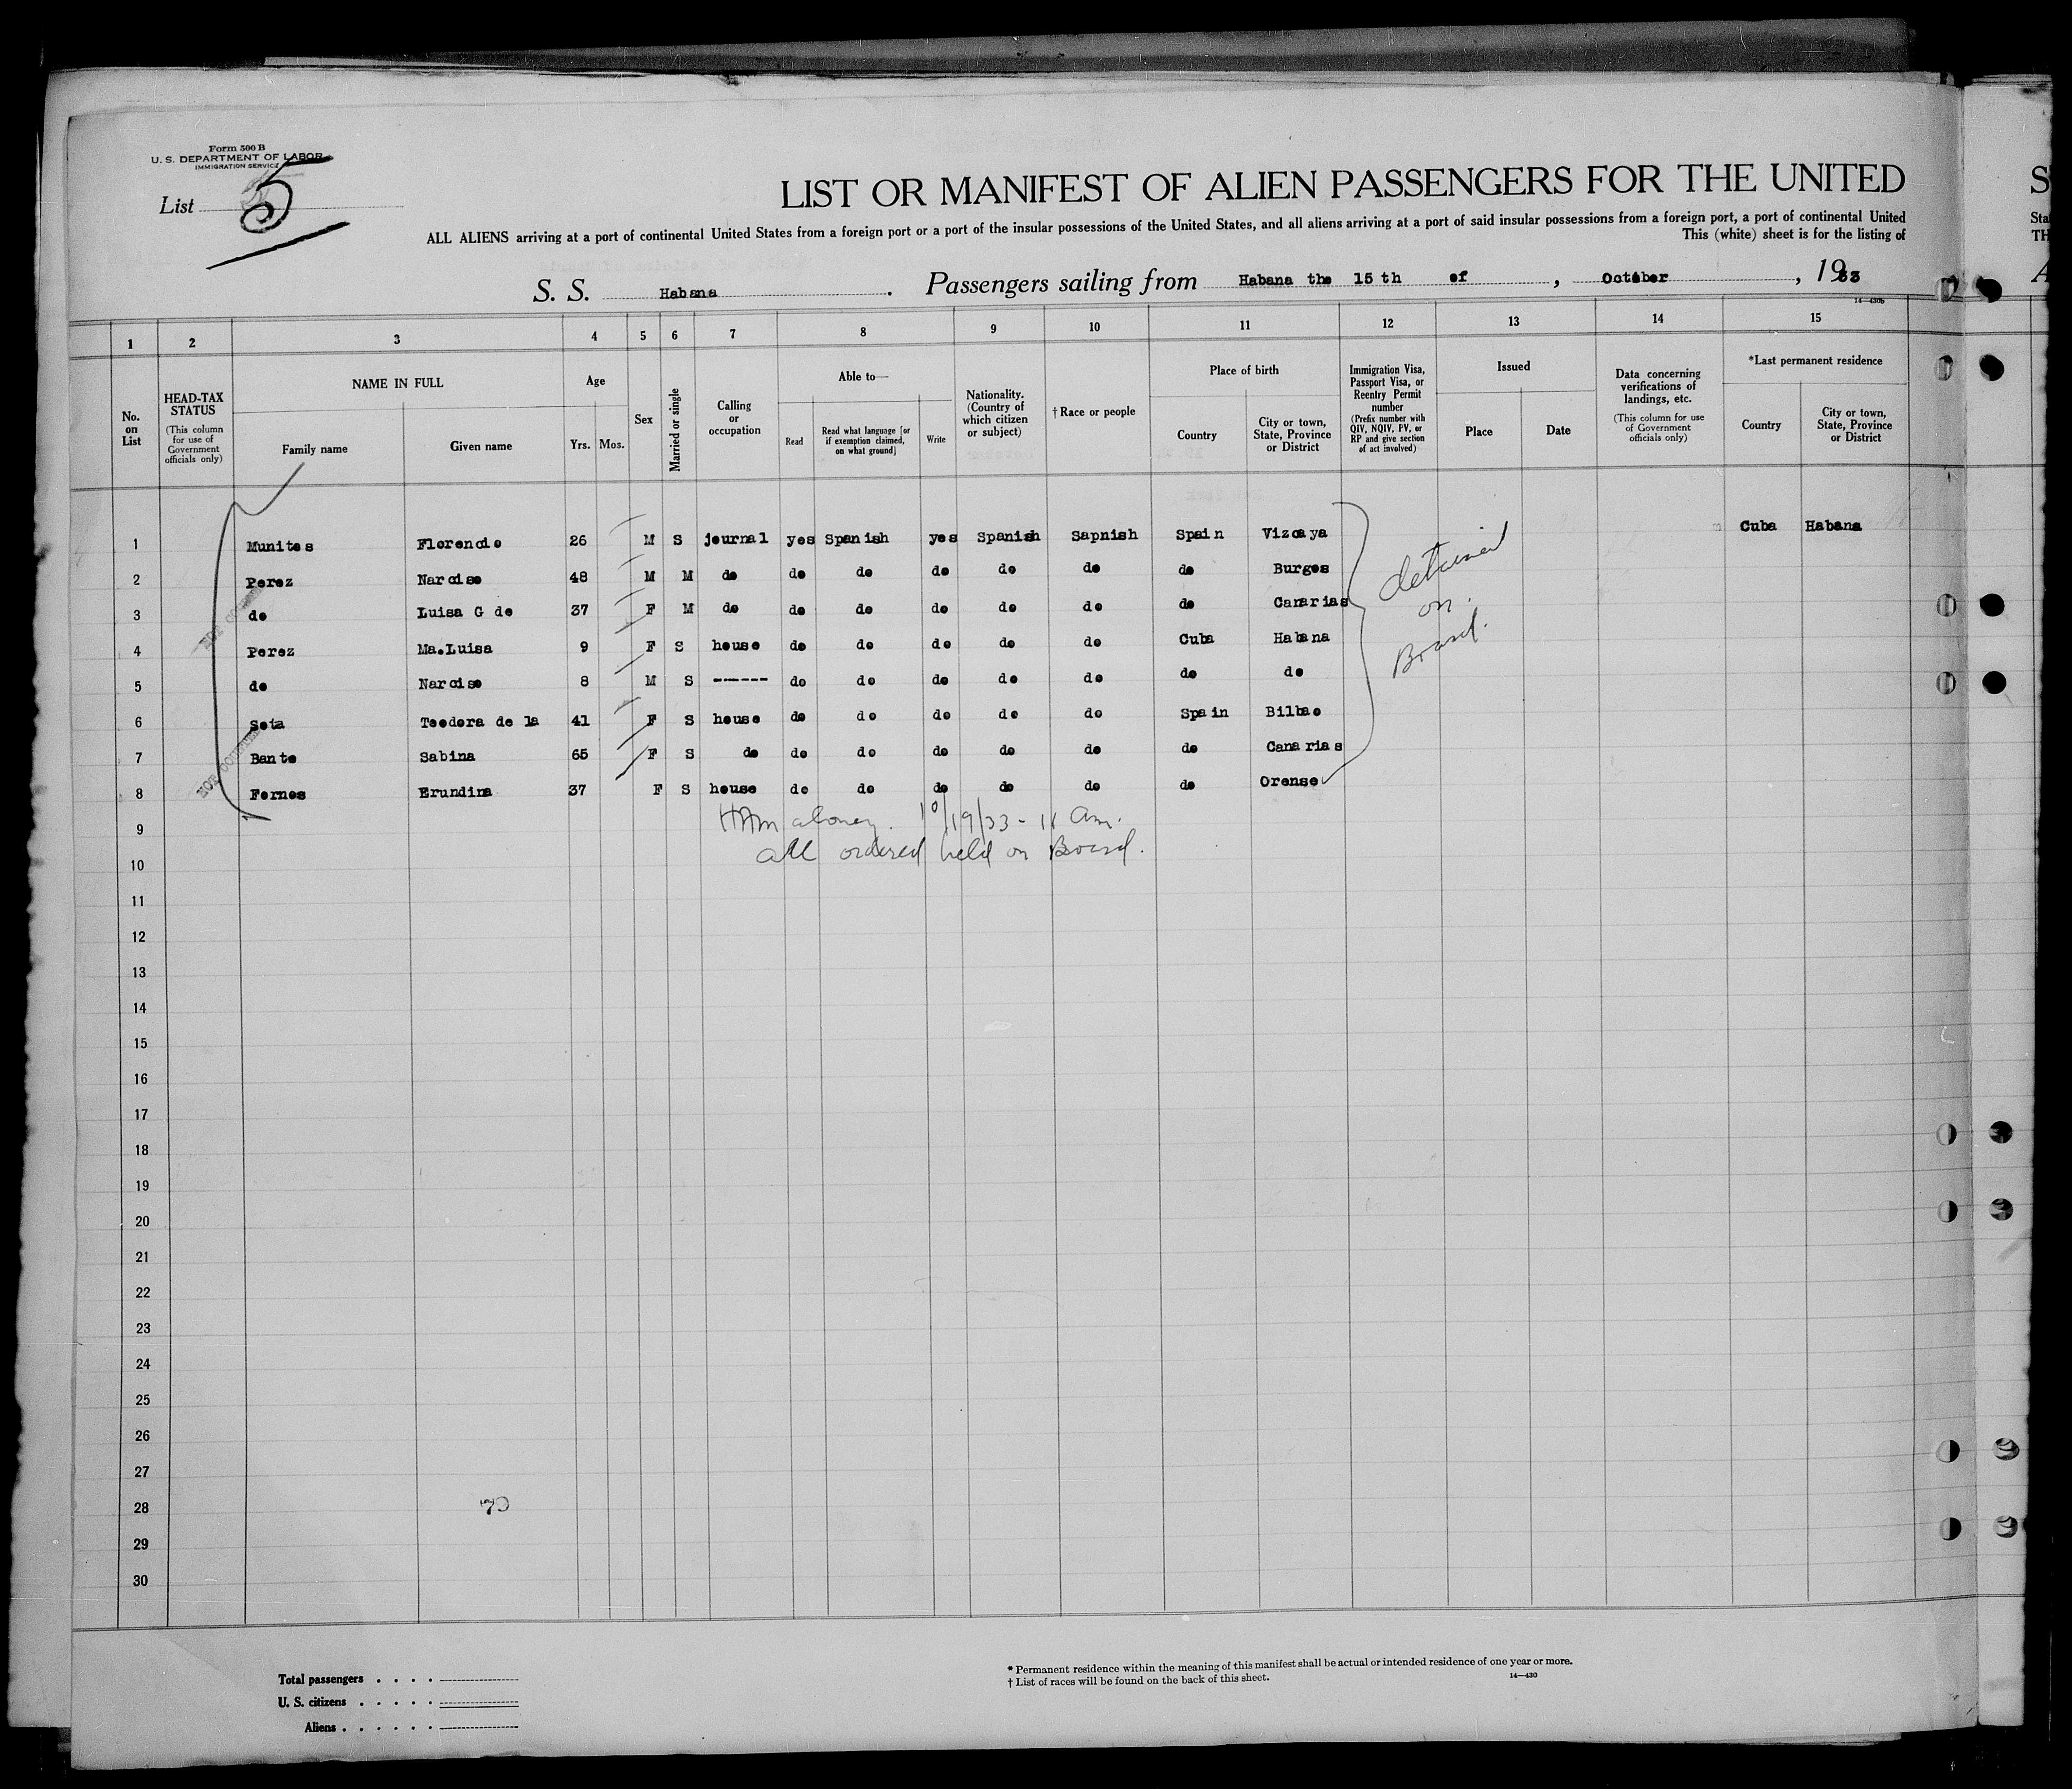 Form 500 B
U. S. DEPARTMENT OF LABOR
IMMIGRATION SERVICE
List 5
LIST OR MANIFEST OF ALIEN PASSENGERS FOR THE UNITED
ALL ALIENS arriving at a port of continental United States from a foreign port or a port of the insular possessions of the United States, and all aliens arriving at a port of said insular possessions from a foreign port, a port of continental United
This (white) sheet is for the listing of
S. S. Habana . Passengers sailing from Habana the 15 th of , October , 1933
14—430b
1 2 3 4 5 6 7 8 9 10 11 12 13 14 15
No. on List
HEAD-TAX STATUS
(This column for use of Government officials only)
NAME IN FULL
Family name Given name
Age
Yrs. Mos.
Sex
Married or single
Calling or occupation
Able to—
Read
Read what language [or if exemption claimed, on what ground]
Write
Nationality. (Country of which citizen or subject)
†Race or people
Place of birth
Country
City or town, State, Province or District
Immigration Visa, Passport Visa, or Reentry Permit number
(Prefix number with QIV, NQIV, PV, or RP and give section of act involved)
Issued
Place Date
Data concerning verifications of landings, etc.
(This column for use of Government officials only)
*Last permanent residence
Country
City or town, State, Province or District
1 Munites Florencio 26 M S journal yes Spanish yes Spanish Sapnish Spain Vizcaya Cuba Habana
2 Perez Narciso 48 M M do do do do do do do Burgos
3 do Luisa G de 37 F M do do do do do do do Canarias
4 Perez Ma.Luisa 9 F S house do do do do do Cuba Habana
5 do Narciso 8 M S ------ do do do do do do do
6 Sota Teodora de la 41 F S house do do do do do Spain Bilbao
7 Bante Sabina 65 F S do do do do do do do Canarias
8 Fernes Erundina 37 F S house do do do do do do Orense
detained
on
Board.
9 HAMaloney. 10/19/33 - 11 am.
10 all ordered held on Board.
11
12
13
14
15
16
17
18
19
20
21
22
23
24
25
26
27
28 70
29
30
Total passengers . . . .
U. S. citizens . . . . .
Aliens . . . . . .
* Permanent residence within the meaning of this manifest shall be actual or intended residence of one year or more.
† List of races will be found on the back of this sheet.
14—430
S
Sta
TH
A